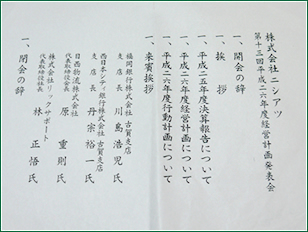 株式会社ニシアツ
第十三回平成二六年度経営計画発表会
一、開会の辞
一、挨拶
一、平成二五年度決算報告について
一、平成二六年度経営計画について
一、平成二六年度行動計画について
一、来賓挨拶
福岡銀行株式会社 古賀支店
支店長 川島浩児氏
西日本シティ銀行株式会社 古賀支店
支店長 丹宗裕一氏
日西物流株式会社
代表取締役社長 原重則氏
株式会社リックサポート
代表取締役 林正悟氏
一、閉会の辞